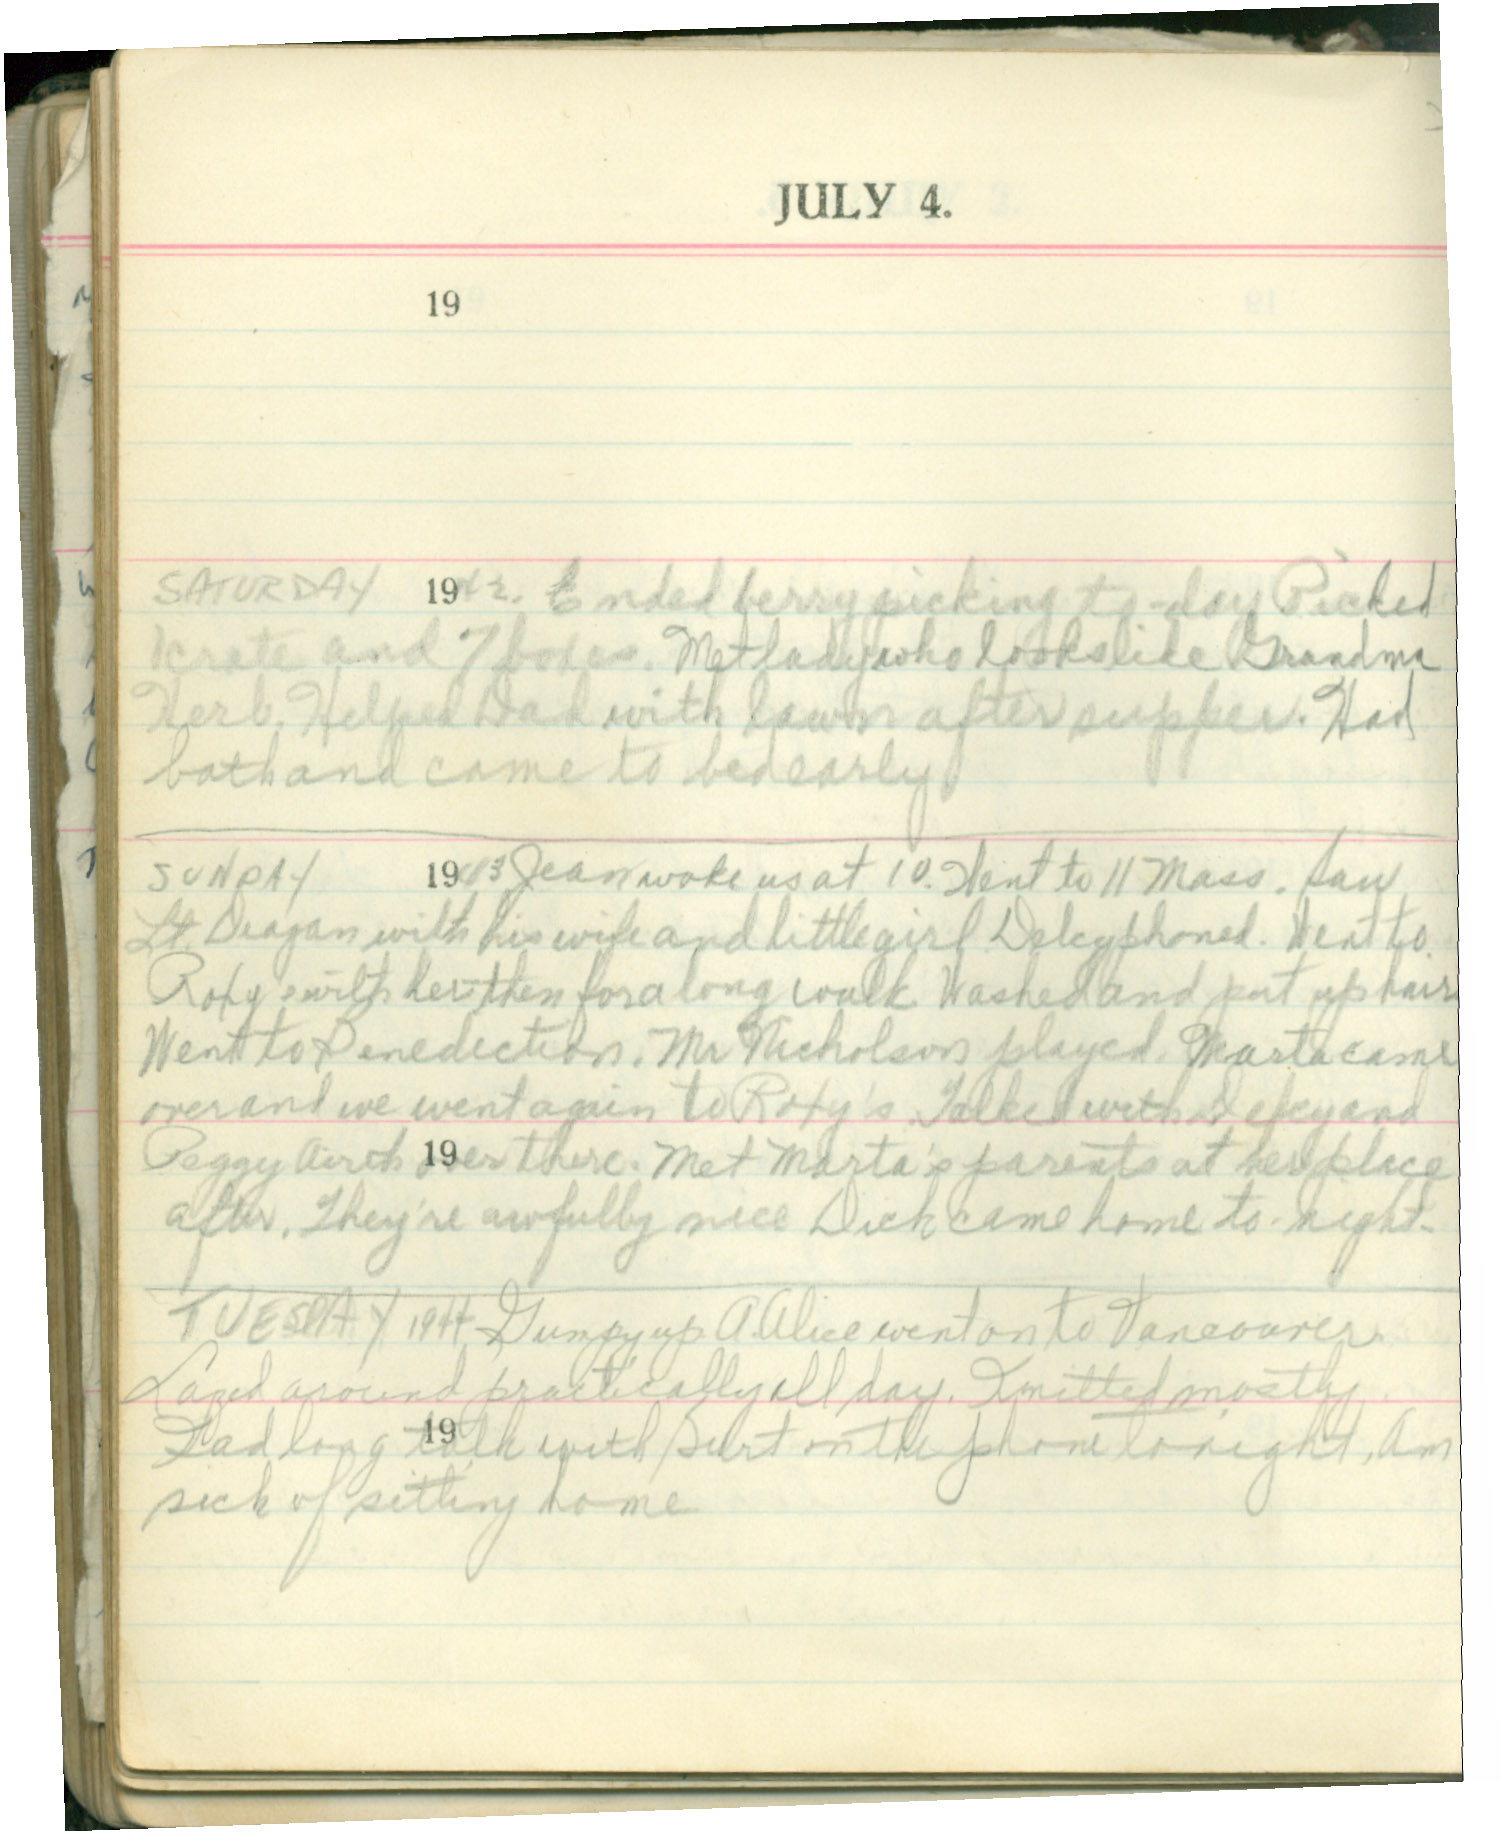 JULY 4.
19
SATURDAY 1942. Ended berry picking to-day Picked
1 crate and 7 boxes. Met lady who looks like Grandma
Herb. Helped Dad with lawn after supper. Had
bath and came to bed early
SUNDAY 1943 Jean woke us at 10. Went to 11 Mass. Saw
Lt. Deagan with his wife and little girl Delcy phoned. Went to
Roxy's with her then for a long walk Washed and put up hair
Went to Benediction. Mr Nicholson played. Marta came
over and we went again to Roxy's. Talked with Delcy and
Peggy over there. Met Marta's parents at her place
19
after. They're awfully nice Dick came home to-night.
TUESDAY 1944 Gumpy up A. Alice went on to Vancouver.
Lazed around practically all day. Knitted mostly.
Had long talk with Burt on the phone tonight. Am
19
sick of sitting home